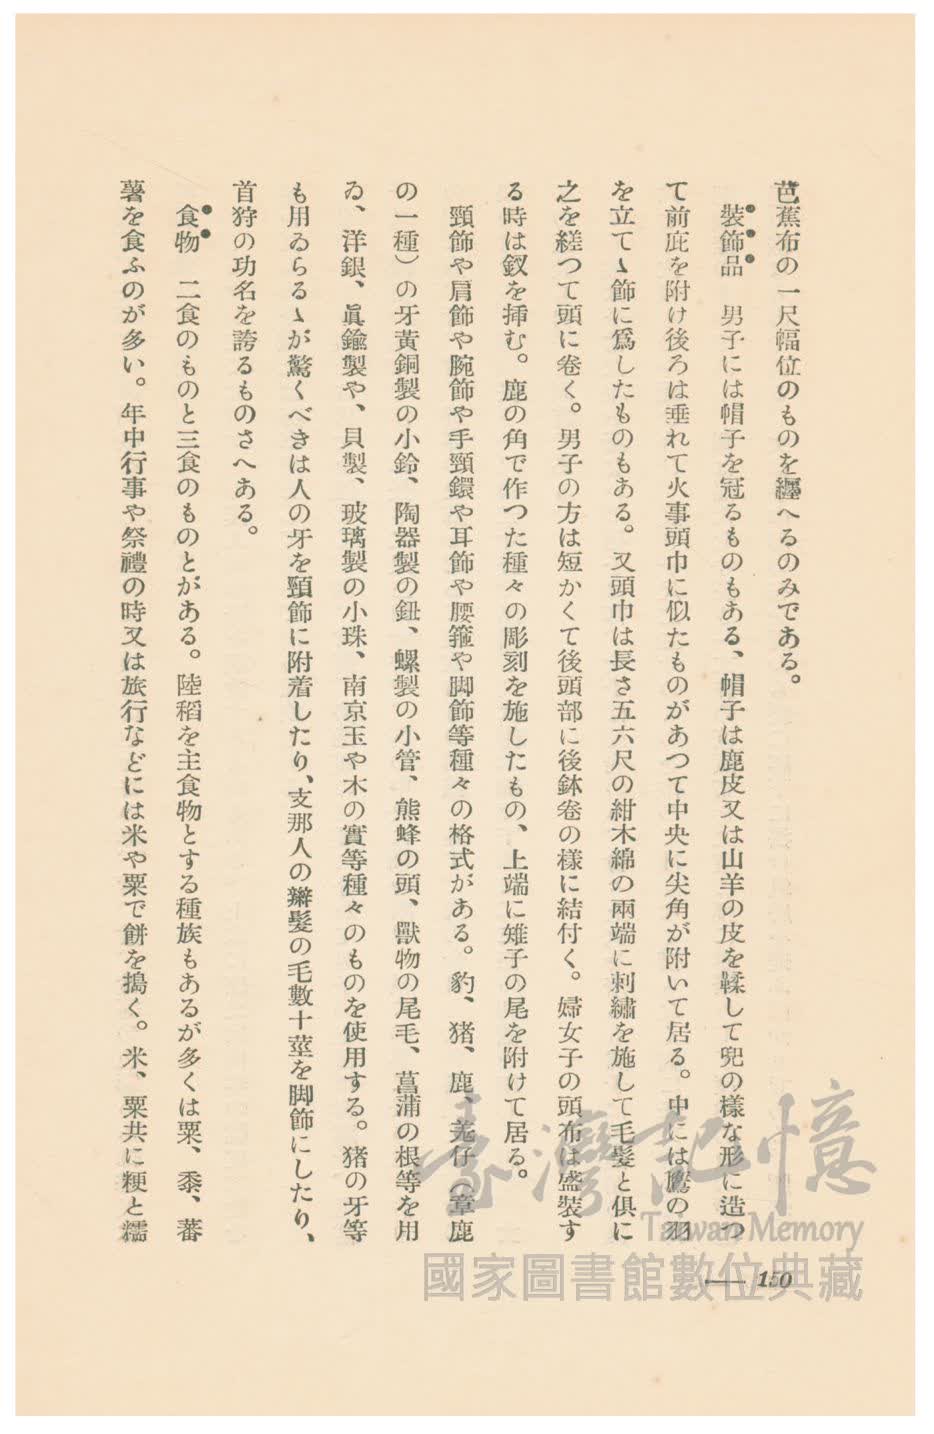 芭蕉布の一尺幅位のものを纒へるのみである。
裝飾品　男子には帽子を冠るものもある、帽子は鹿皮又は山羊の皮を鞣して兜の樣な形に造つ
て前庇を附け後ろは垂れて火事頭巾に似たものがあつて中央に尖角が附いて居る。中には鷹の羽
を立てゝ飾に爲したものもある。又頭巾は長さ五六尺の紺木綿の兩端に刺繡を施して毛髮と俱に
之を縒つて頭に卷く。男子の方は短かくて後頭部に後鉢卷の樣に結付く。婦女子の頭布は盛裝す
る時は釵を揷む。鹿の角で作つた種々の彫刻を施したもの、上端に雉子の尾を附けて居る。
頸飾や肩飾や腕飾や手頸鐶や耳飾や腰箍や脚飾等種々の格式がある。豹、猪、鹿、羌仔の章鹿
の一種）の牙黃銅製の小鈴、陶器製の鈕、螺製の小管、熊蜂の頭、獸物の尾毛、菖蒲の根等を用
ゐ、洋銀、眞鍮製や、貝製、玻璃製の小珠、南京玉や木の實等種々のものを使用する。猪の牙等
も用ゐらるゝが驚くべきは人の牙を頸飾に附着したり、支那人の辮髮の毛數十莖を脚飾にしたり、
首狩の功名を誇るものさへある。
食物　二食のものと三食のものとがある。陸稻を主食物とする種族もあるが多くは粟、黍、蕃
薯を食ふのが多い。年中行事や祭禮の時又は旅行などには米や粟で餅を搗く。米、粟共に粳と糯
150
臺灣記憶
Taiwan Memory
國家圖書館數位典藏